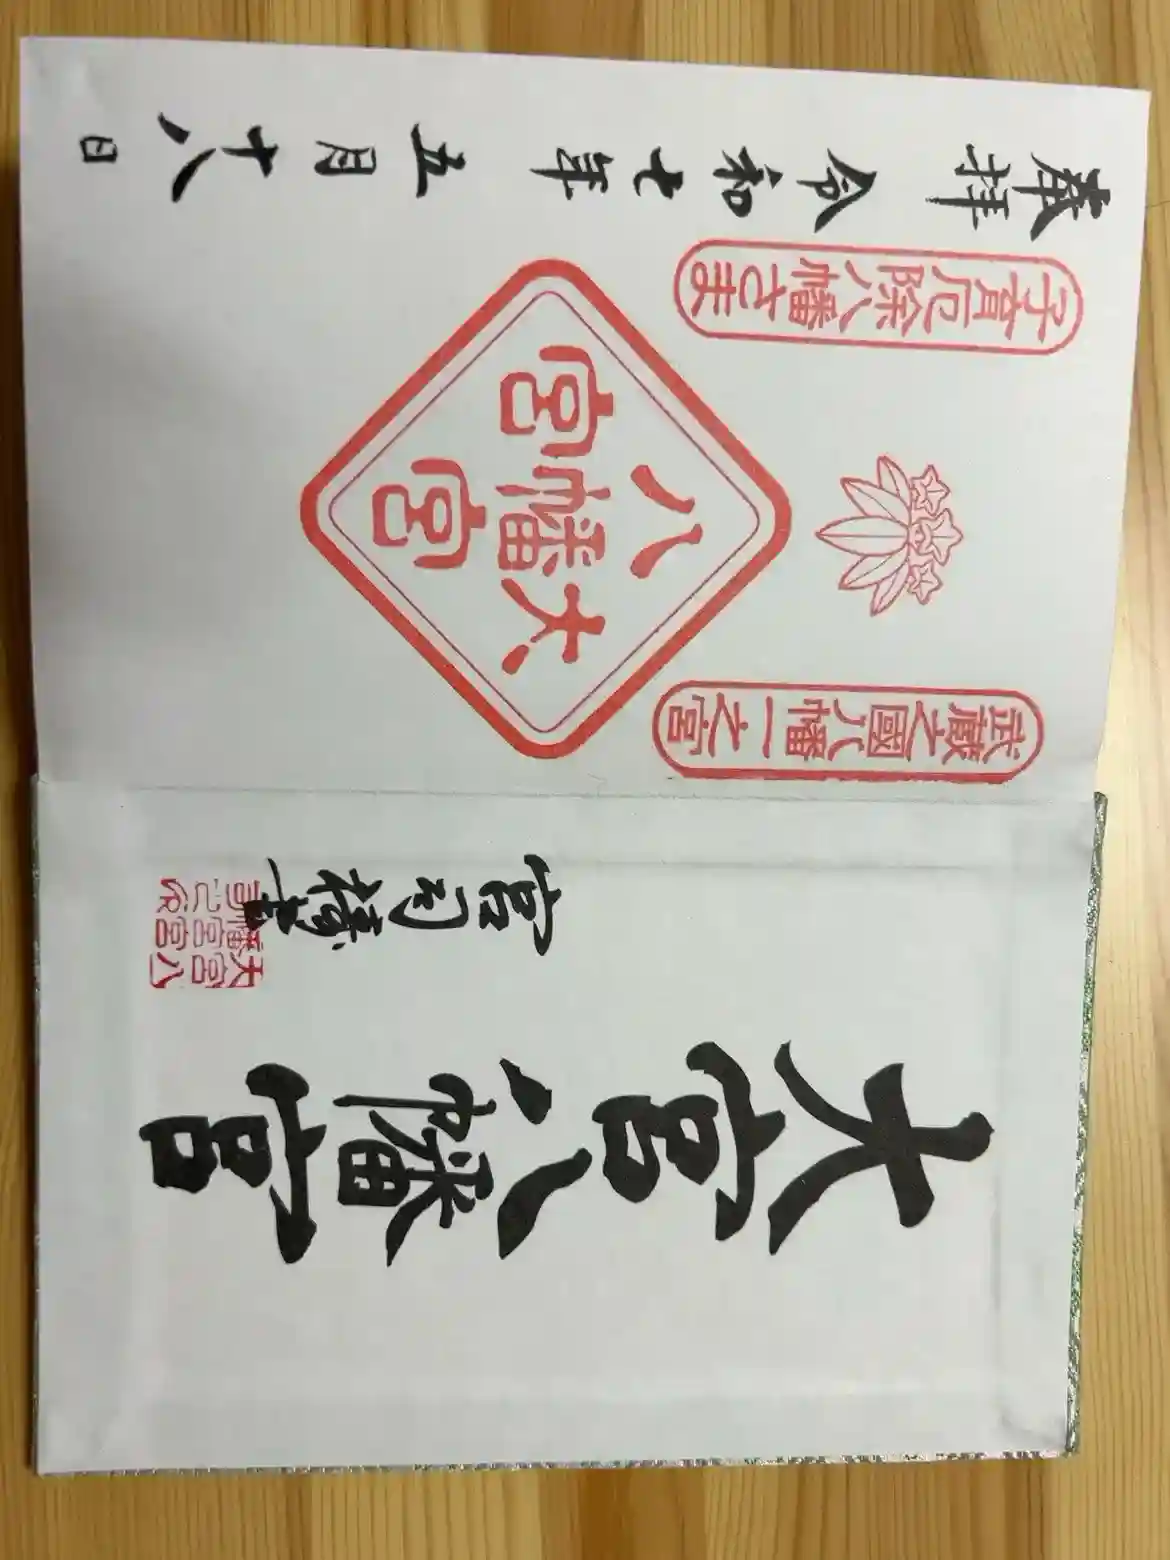 大宮八幡宮
宮司
大宮八幡宮宮司之印
武蔵之國八幡一之宮
大宮八幡宮
子育厄除八幡さま
奉拝 令和七年 五月十八日